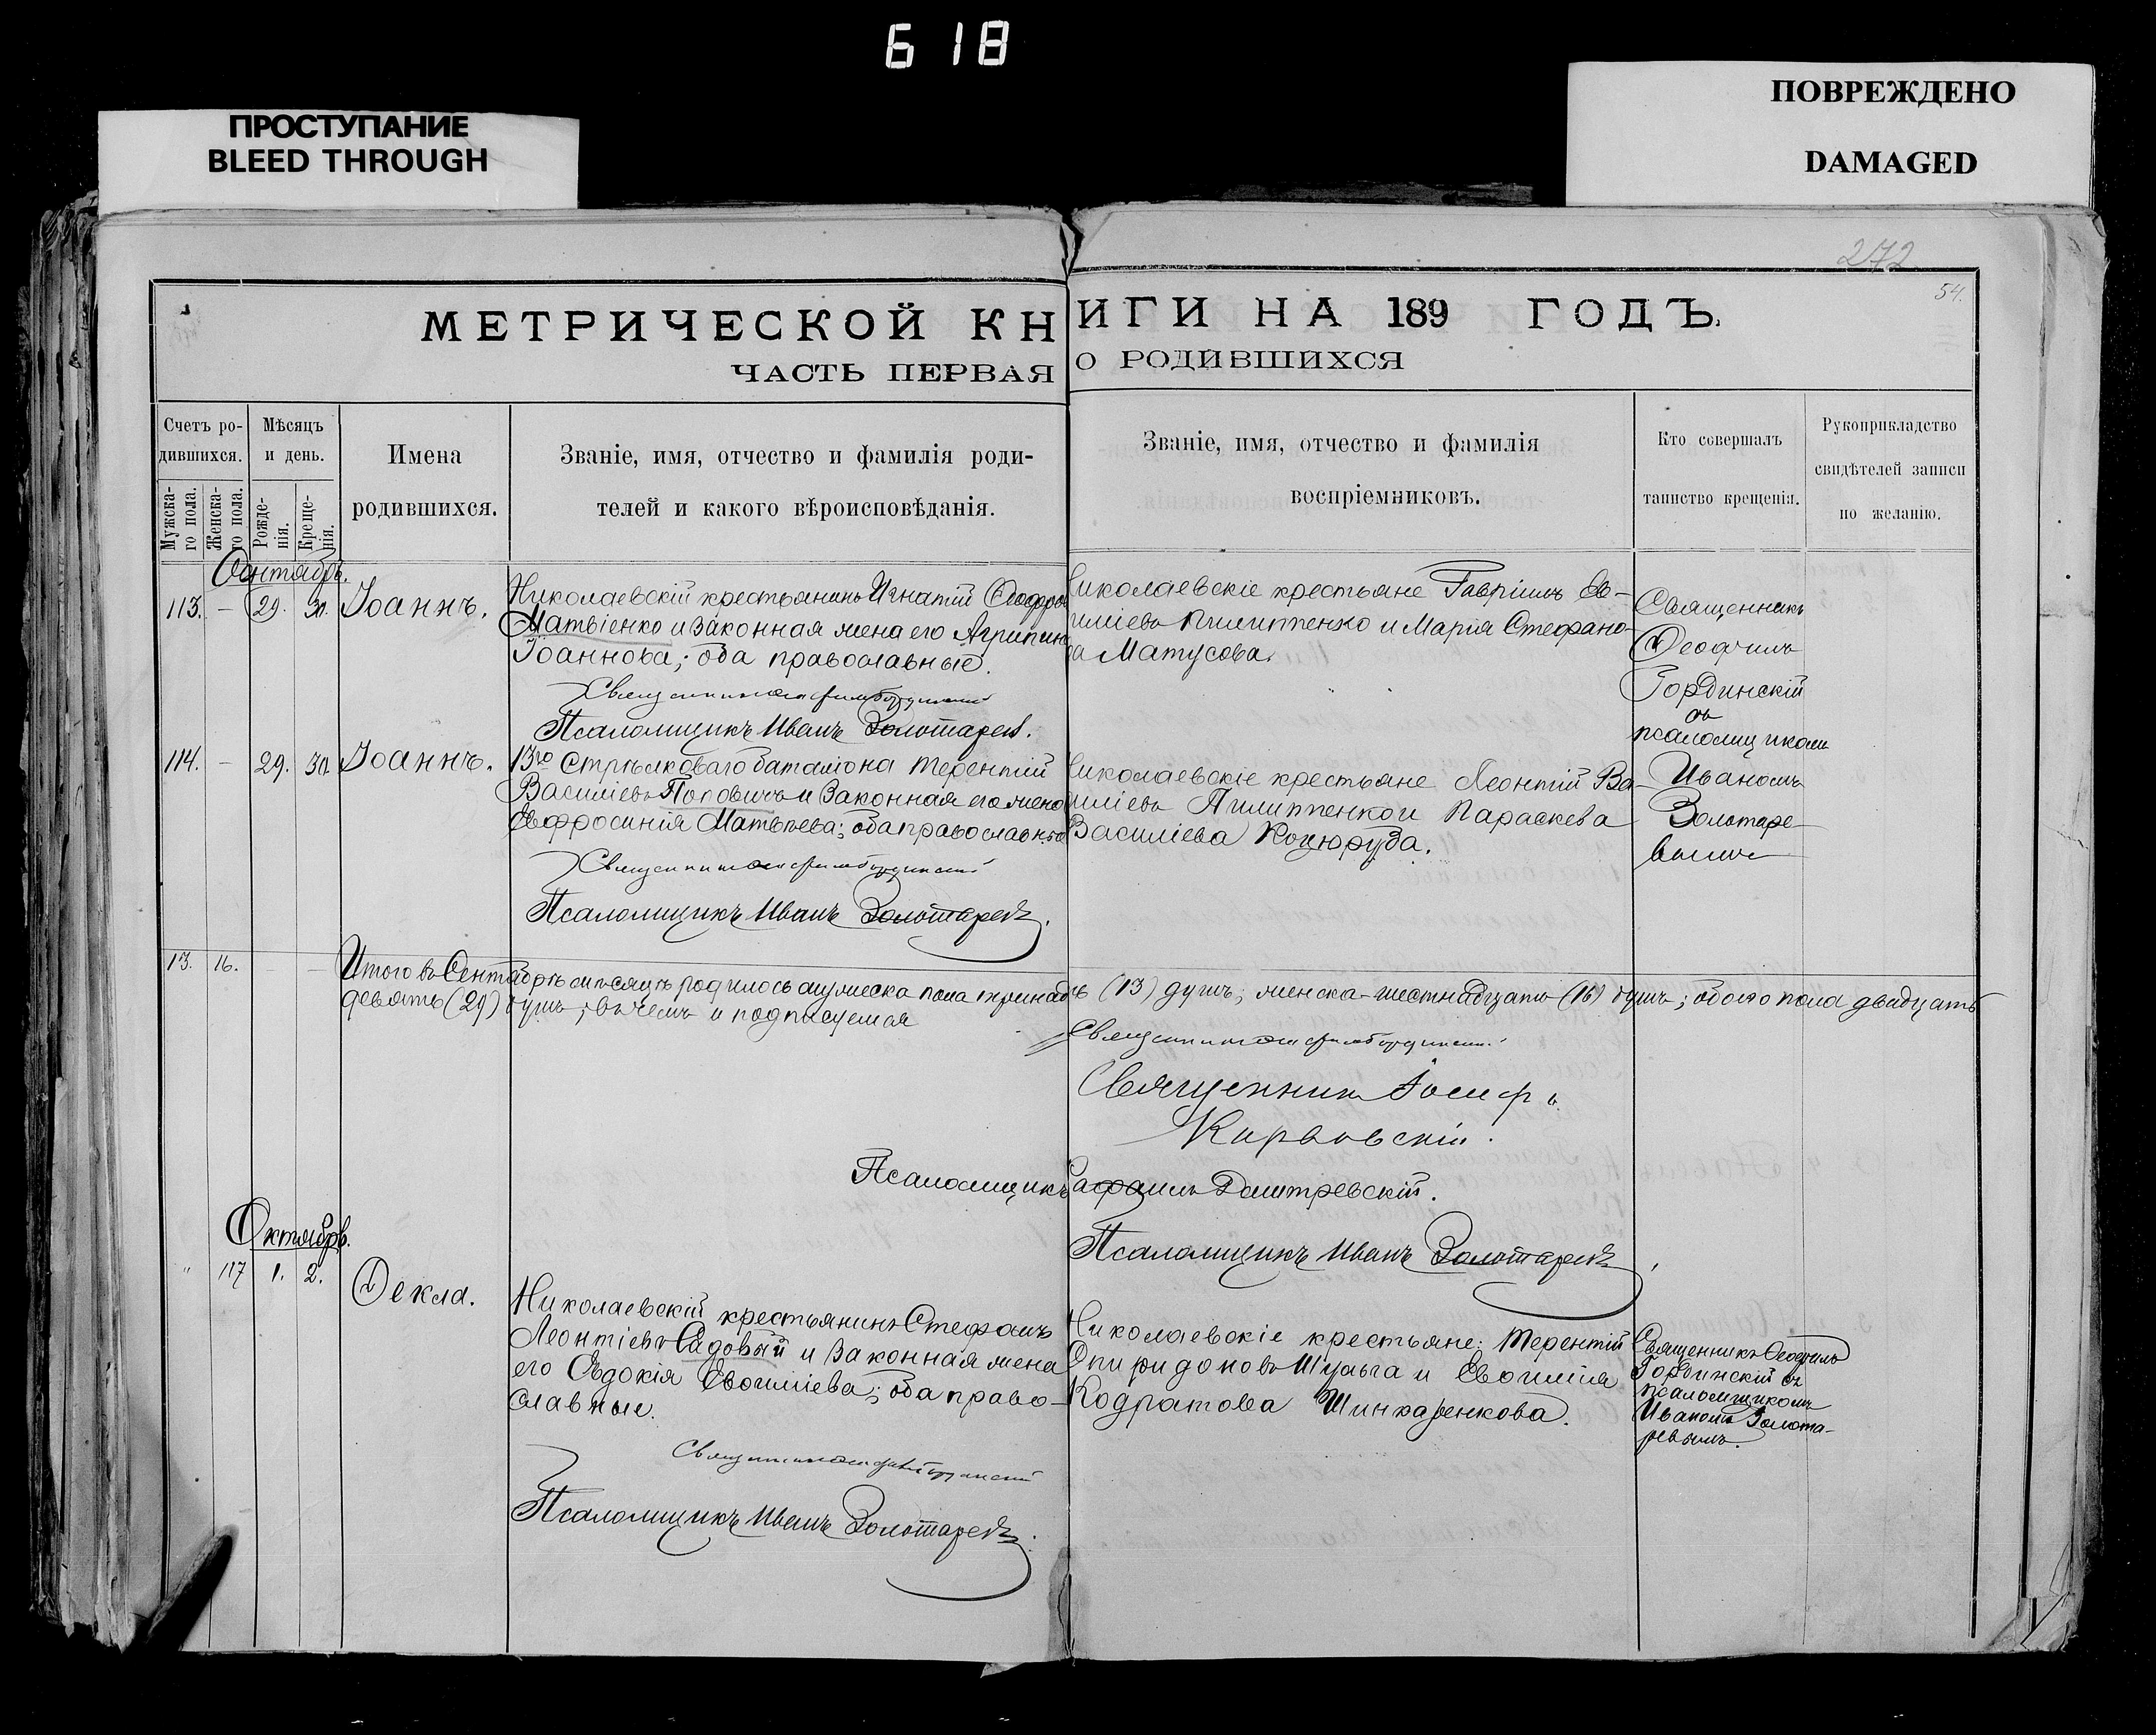 618
ПРОСТУПАНИЕ
BLEED THROUGH
ПОВРЕЖДЕНО
DAMAGED
272
54.
МЕТРИЧЕСКОЙ КНИГИ НА 189 ГОДЪ.
ЧАСТЬ ПЕРВАЯ О РОДИВШИХСЯ
Счетъ ро-
дившихся.
Мужска-
го пола.
Женска-
го пола.
Мѣсяцъ
и день.
Рожде-
нія.
Креще-
нія.
Имена
родившихся.
Званіе, имя, отчество и фамилія роди-
телей и какого вѣроисповѣданія.
Званіе, имя, отчество и фамилія
воспріемниковъ.
Кто совершалъ
таинство крещенія.
Рукоприкладство
свидѣтелей записи
по желанію.
Сентябрь.
113. – 29. 30. Іоаннъ.
Николаевскій крестьянинъ Игнатій Ѳеодоро
Матвіенко и законная жена его Агрипин
Іоаннова; оба православные.
Священникъ
Псаломщикъ Иванъ Золотаревъ.
иколаевскіе крестьяне Гавріилъ Ев-
иміевъ Пилиппенко и Марія Стефано-
ва Матусова.
Священникъ
Ѳеофилъ
Гординскій
съ
псаломщикомъ
Иваномъ
Золотаре-
вымъ
114. – 29. 30. Іоаннъ.
13го Стрѣлковаго баталіона Терентій
Василіевъ Поповичъ и законная его жена
Евфросинія Матвѣева; оба православные
Священникъ
Псаломщикъ Иванъ Золотаревъ.
иколаевскіе крестьяне Леонтій Ва-
иліевъ Пилиппенко и Параскева
Василіева Коцюруба.
13. 16. – –
Итого въ Сентябрѣ мѣсяцѣ родилось мужеска пола тринадць (13) душъ; женска-шестнадцать (16) душъ; обоего пола двадцать
девять (29) душъ; въ чемъ и подписуемся
Священникъ
Священник Іосифъ
Карповскій.
Псаломщикъ Рафаилъ Дмитревскій.
Псаломщикъ Иванъ Золотаревъ
Октябрь.
" 117 1. 2. Ѳекла.
Николаевскій крестьянинъ Стефанъ
Леонтіевъ Садовый и законная жена
его Евдокія Евфиміева; оба право-
славные.
Священникъ
Псаломщикъ Иванъ Золотаревъ.
Николаевскіе крестьяне: Терентій
Спиридоновъ Шульга и Евфимія
Кодратова Шинкаренкова.
Священникъ Ѳеофилъ
Гординскій съ
псаломщикомъ
Иваномъ Золота-
ревымъ.